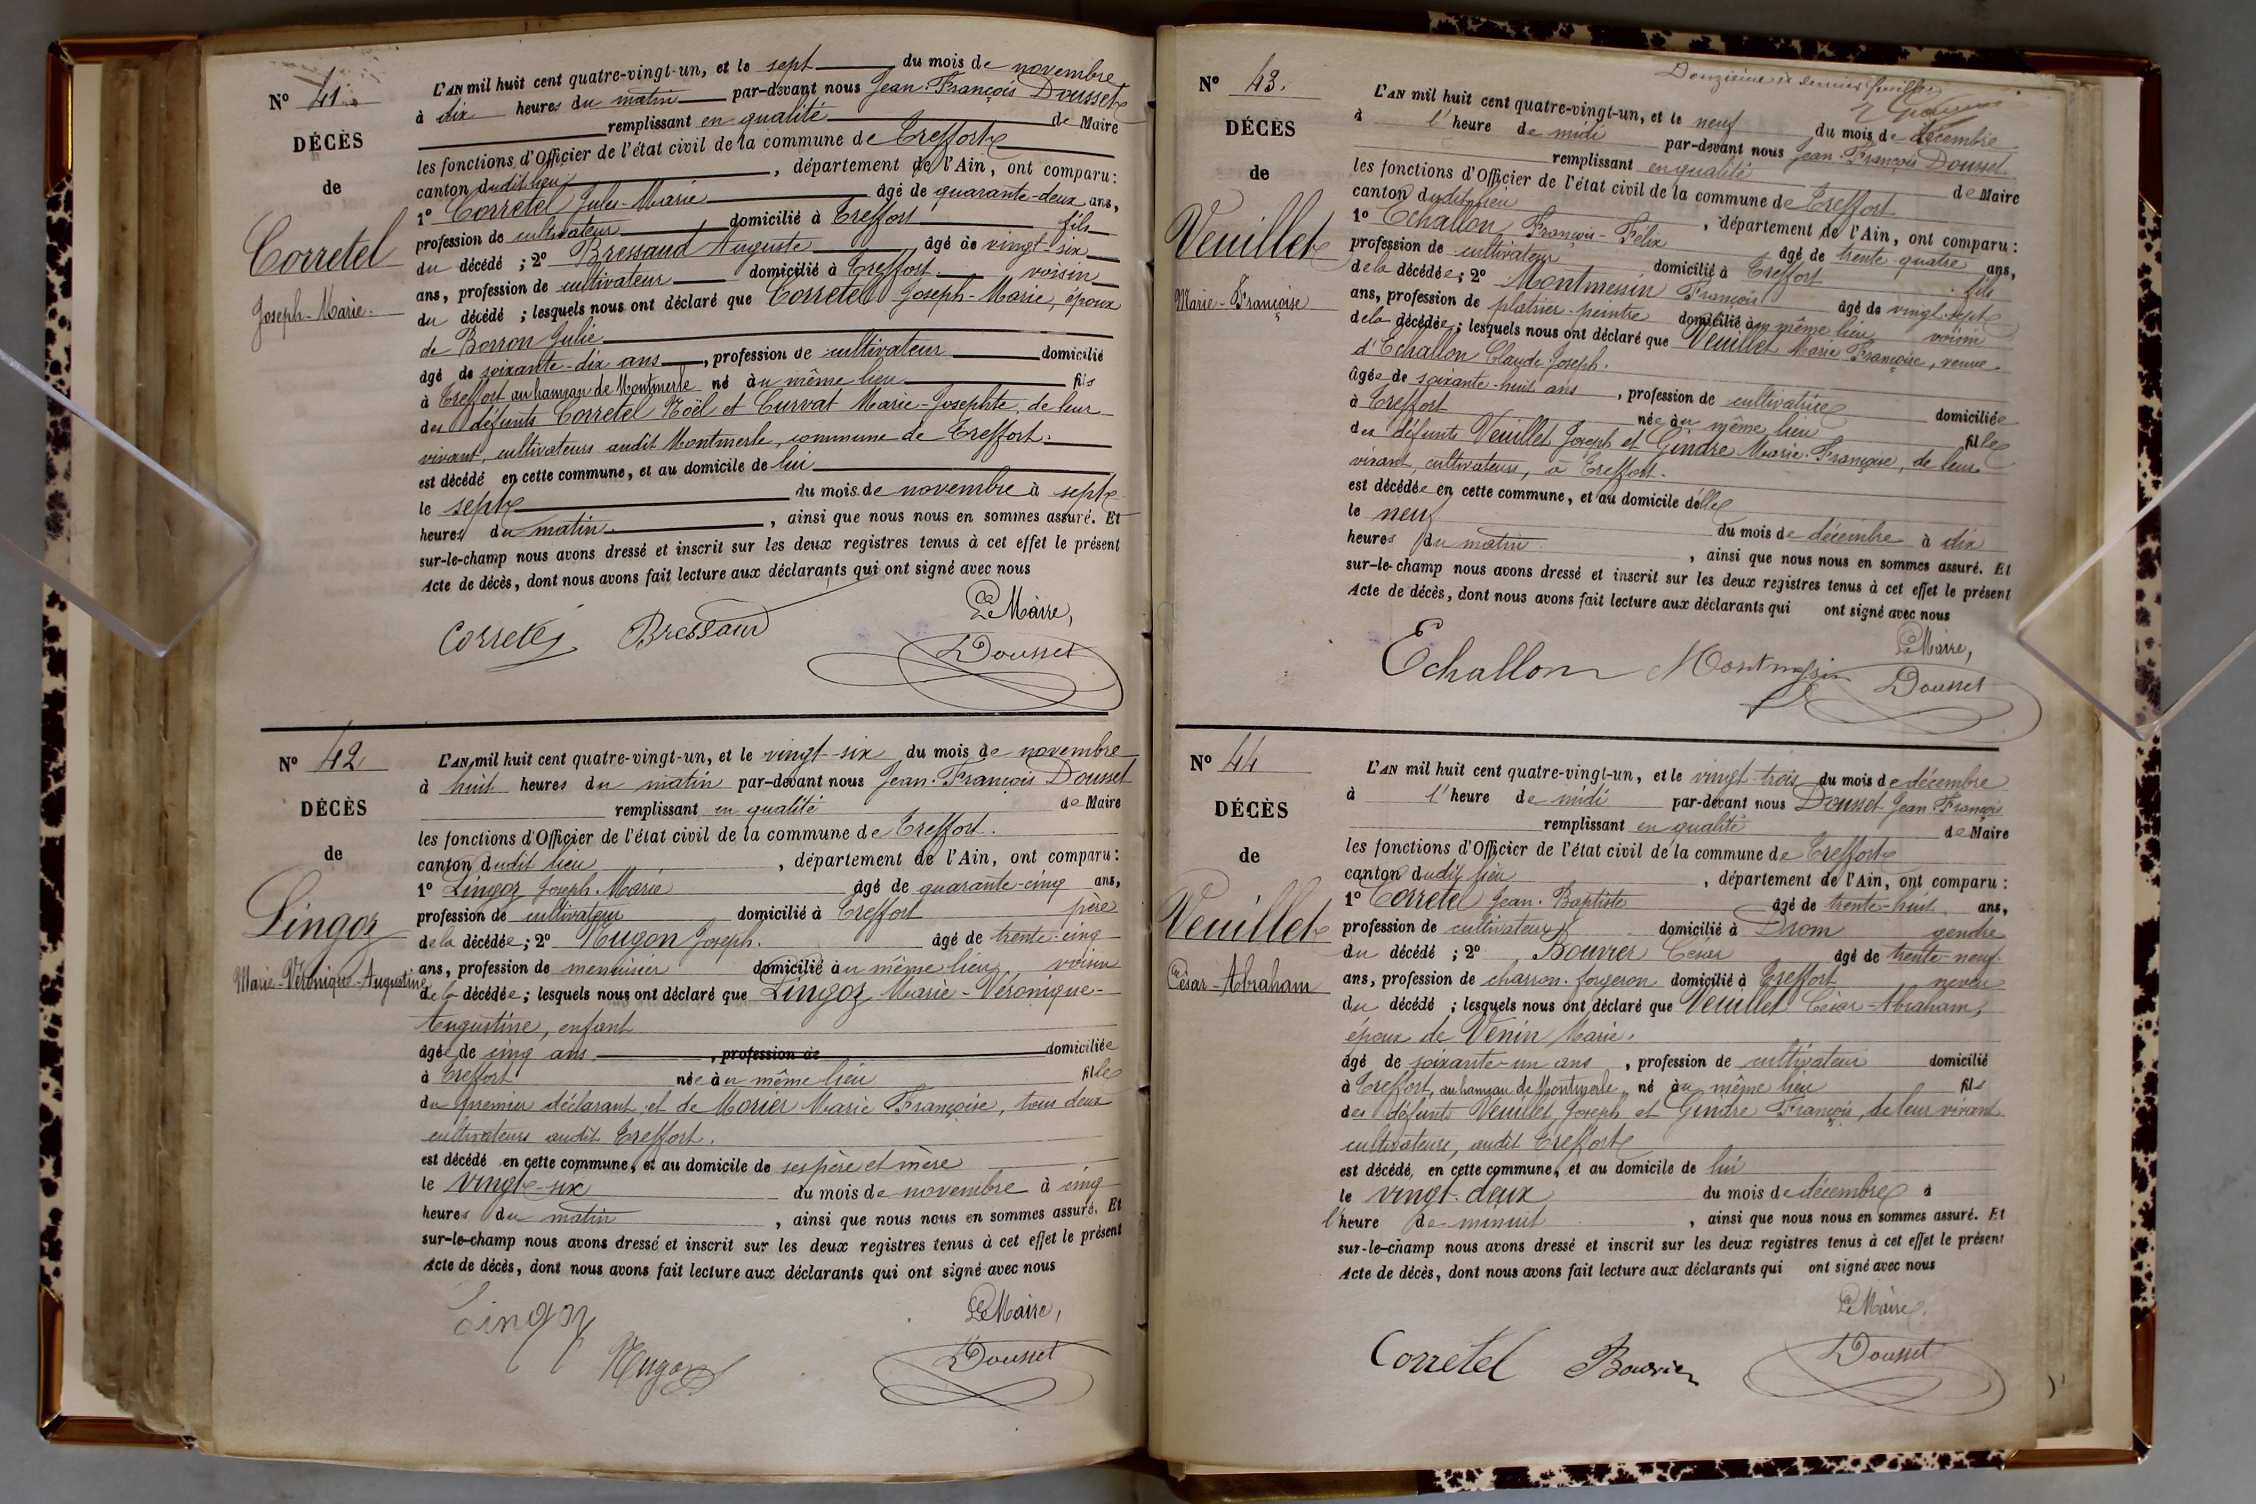 N° 41.
DÉCÈS
de
Corretel
Joseph-Marie.
L'AN mil huit cent quatre-vingt-un, et le sept du mois de novembre
à dix heures du matin par-devant nous Jean-François Dousset
remplissant en qualité de Maire
les fonctions d'Officier de l'état civil de la commune de Treffort
canton dudit lieu, département de l'Ain, ont comparu:
1° Corretel Jules-Marie âgé de quarante-deux ans,
profession de cultivateur domicilié à Treffort fils
du décédé ; 2° Bressaud Auguste âgé de vingt-six
ans, profession de cultivateur domicilié à Treffort voisin
du décédé ; lesquels nous ont déclaré que Corretel Joseph-Marie, époux
de Borron Julie
âgé de soixante-dix ans, profession de cultivateur domicilié
à Treffort au hameau de Montmerle né au même lieu fils
des défunts Corretel Noël et Curvat Marie-Josephte, de leur
vivant, cultivateurs audit Montmerle, commune de Treffort.
est décédé en cette commune, et au domicile de lui
le sept du mois de novembre à sept
heures du matin, ainsi que nous nous en sommes assuré. Et
sur-le-champ nous avons dressé et inscrit sur les deux registres tenus à cet effet le présent
Acte de décès, dont nous avons fait lecture aux déclarants qui ont signé avec nous
Le Maire,
Corretel Bressaud
Dousset
N° 42
DÉCÈS
de
Lingoz
Marie-Véronique-Augustine
L'AN mil huit cent quatre-vingt-un, et le vingt-six du mois de novembre
à huit heures du matin par-devant nous Jean-François Dousset
remplissant en qualité de Maire
les fonctions d'Officier de l'état civil de la commune de Treffort.
canton dudit lieu, département de l'Ain, ont comparu:
1° Lingoz Joseph-Marie âgé de quarante-cinq ans,
profession de cultivateur domicilié à Treffort père
de la décédée; 2° Nugon Joseph. âgé de trente-cinq
ans, profession de menuisier domicilié au même lieu voisin
de la décédée; lesquels nous ont déclaré que Lingoz Marie-Véronique-
Augustine, enfant
âgée de cinq ans, profession de domiciliée
à Treffort née au même lieu fille
du premier déclarant et de Morier Marie Françoise, tous deux
cultivateurs audit Treffort.
est décédé en cette commune, et au domicile de ses père et mère
le vingt-six du mois de novembre à cinq
heures du matin, ainsi que nous nous en sommes assuré. Et
sur-le-champ nous avons dressé et inscrit sur les deux registres tenus à cet effet le présent
Acte de décès, dont nous avons fait lecture aux déclarants qui ont signé avec nous
Le Maire,
Lingoz
Nugon
Dousset
Douzième et dernier feuillet
N° 43.
DÉCÈS
de
Veuillet
Marie-Françoise
L'AN mil huit cent quatre-vingt-un, et le neuf du mois de décembre
à l'heure de midi par-devant nous Jean-François Dousset
remplissant en qualité de Maire
les fonctions d'Officier de l'état civil de la commune de Treffort
canton dudit lieu, département de l'Ain, ont comparu:
1° Echallon François-Félix âgé de trente quatre ans,
profession de cultivateur domicilié à Treffort fils
de la décédée; 2° Montmessin François âgé de vingt-sept
ans, profession de platrier-peintre domicilié au même lieu voisin
de la décédée; lesquels nous ont déclaré que Veuillet Marie Françoise, veuve
d'Echallon Claude-Joseph.
âgée de soixante-huit ans, profession de cultivatrice domiciliée
à Treffort née au même lieu fille
des défunts Veuillet Joseph et Gindre Marie-Françoise, de leur
vivant, cultivateurs, à Treffort.
est décédée en cette commune, et au domicile d'elle
le neuf du mois de décembre à dix
heures du matin, ainsi que nous nous en sommes assuré. Et
sur-le-champ nous avons dressé et inscrit sur les deux registres tenus à cet effet le présent
Acte de décès, dont nous avons fait lecture aux déclarants qui ont signé avec nous
Le Maire,
Echallon Montmessin
Dousset
N° 44
DÉCÈS
de
Veuillet
César-Abraham
L'AN mil huit cent quatre-vingt-un, et le vingt-trois du mois de décembre
à l'heure de midi par-devant nous Dousset Jean-François
remplissant en qualité de Maire
les fonctions d'Officier de l'état civil de la commune de Treffort
canton dudit lieu, département de l'Ain, ont comparu:
1° Corretel Jean-Baptiste âgé de trente-huit ans,
profession de cultivateur domicilié à Drom gendre
du décédé ; 2° Bouvier César âgé de trente-neuf
ans, profession de charron-forgeron domicilié à Treffort neveu
du décédé ; lesquels nous ont déclaré que Veuillet César-Abraham,
époux de Venin Marie.
âgé de soixante-un ans, profession de cultivateur domicilié
à Treffort, au hameau de Montmerle, né au même lieu fils
des défunts Veuillet Joseph et Gindre François, de leur vivant
cultivateurs, audit Treffort
est décédé, en cette commune, et au domicile de lui
le vingt-deux du mois de décembre à
l'heure de minuit, ainsi que nous nous en sommes assuré. Et
sur-le-champ nous avons dressé et inscrit sur les deux registres tenus à cet effet le présent
Acte de décès, dont nous avons fait lecture aux déclarants qui ont signé avec nous
Le Maire,
Corretel Bouvier
Dousset